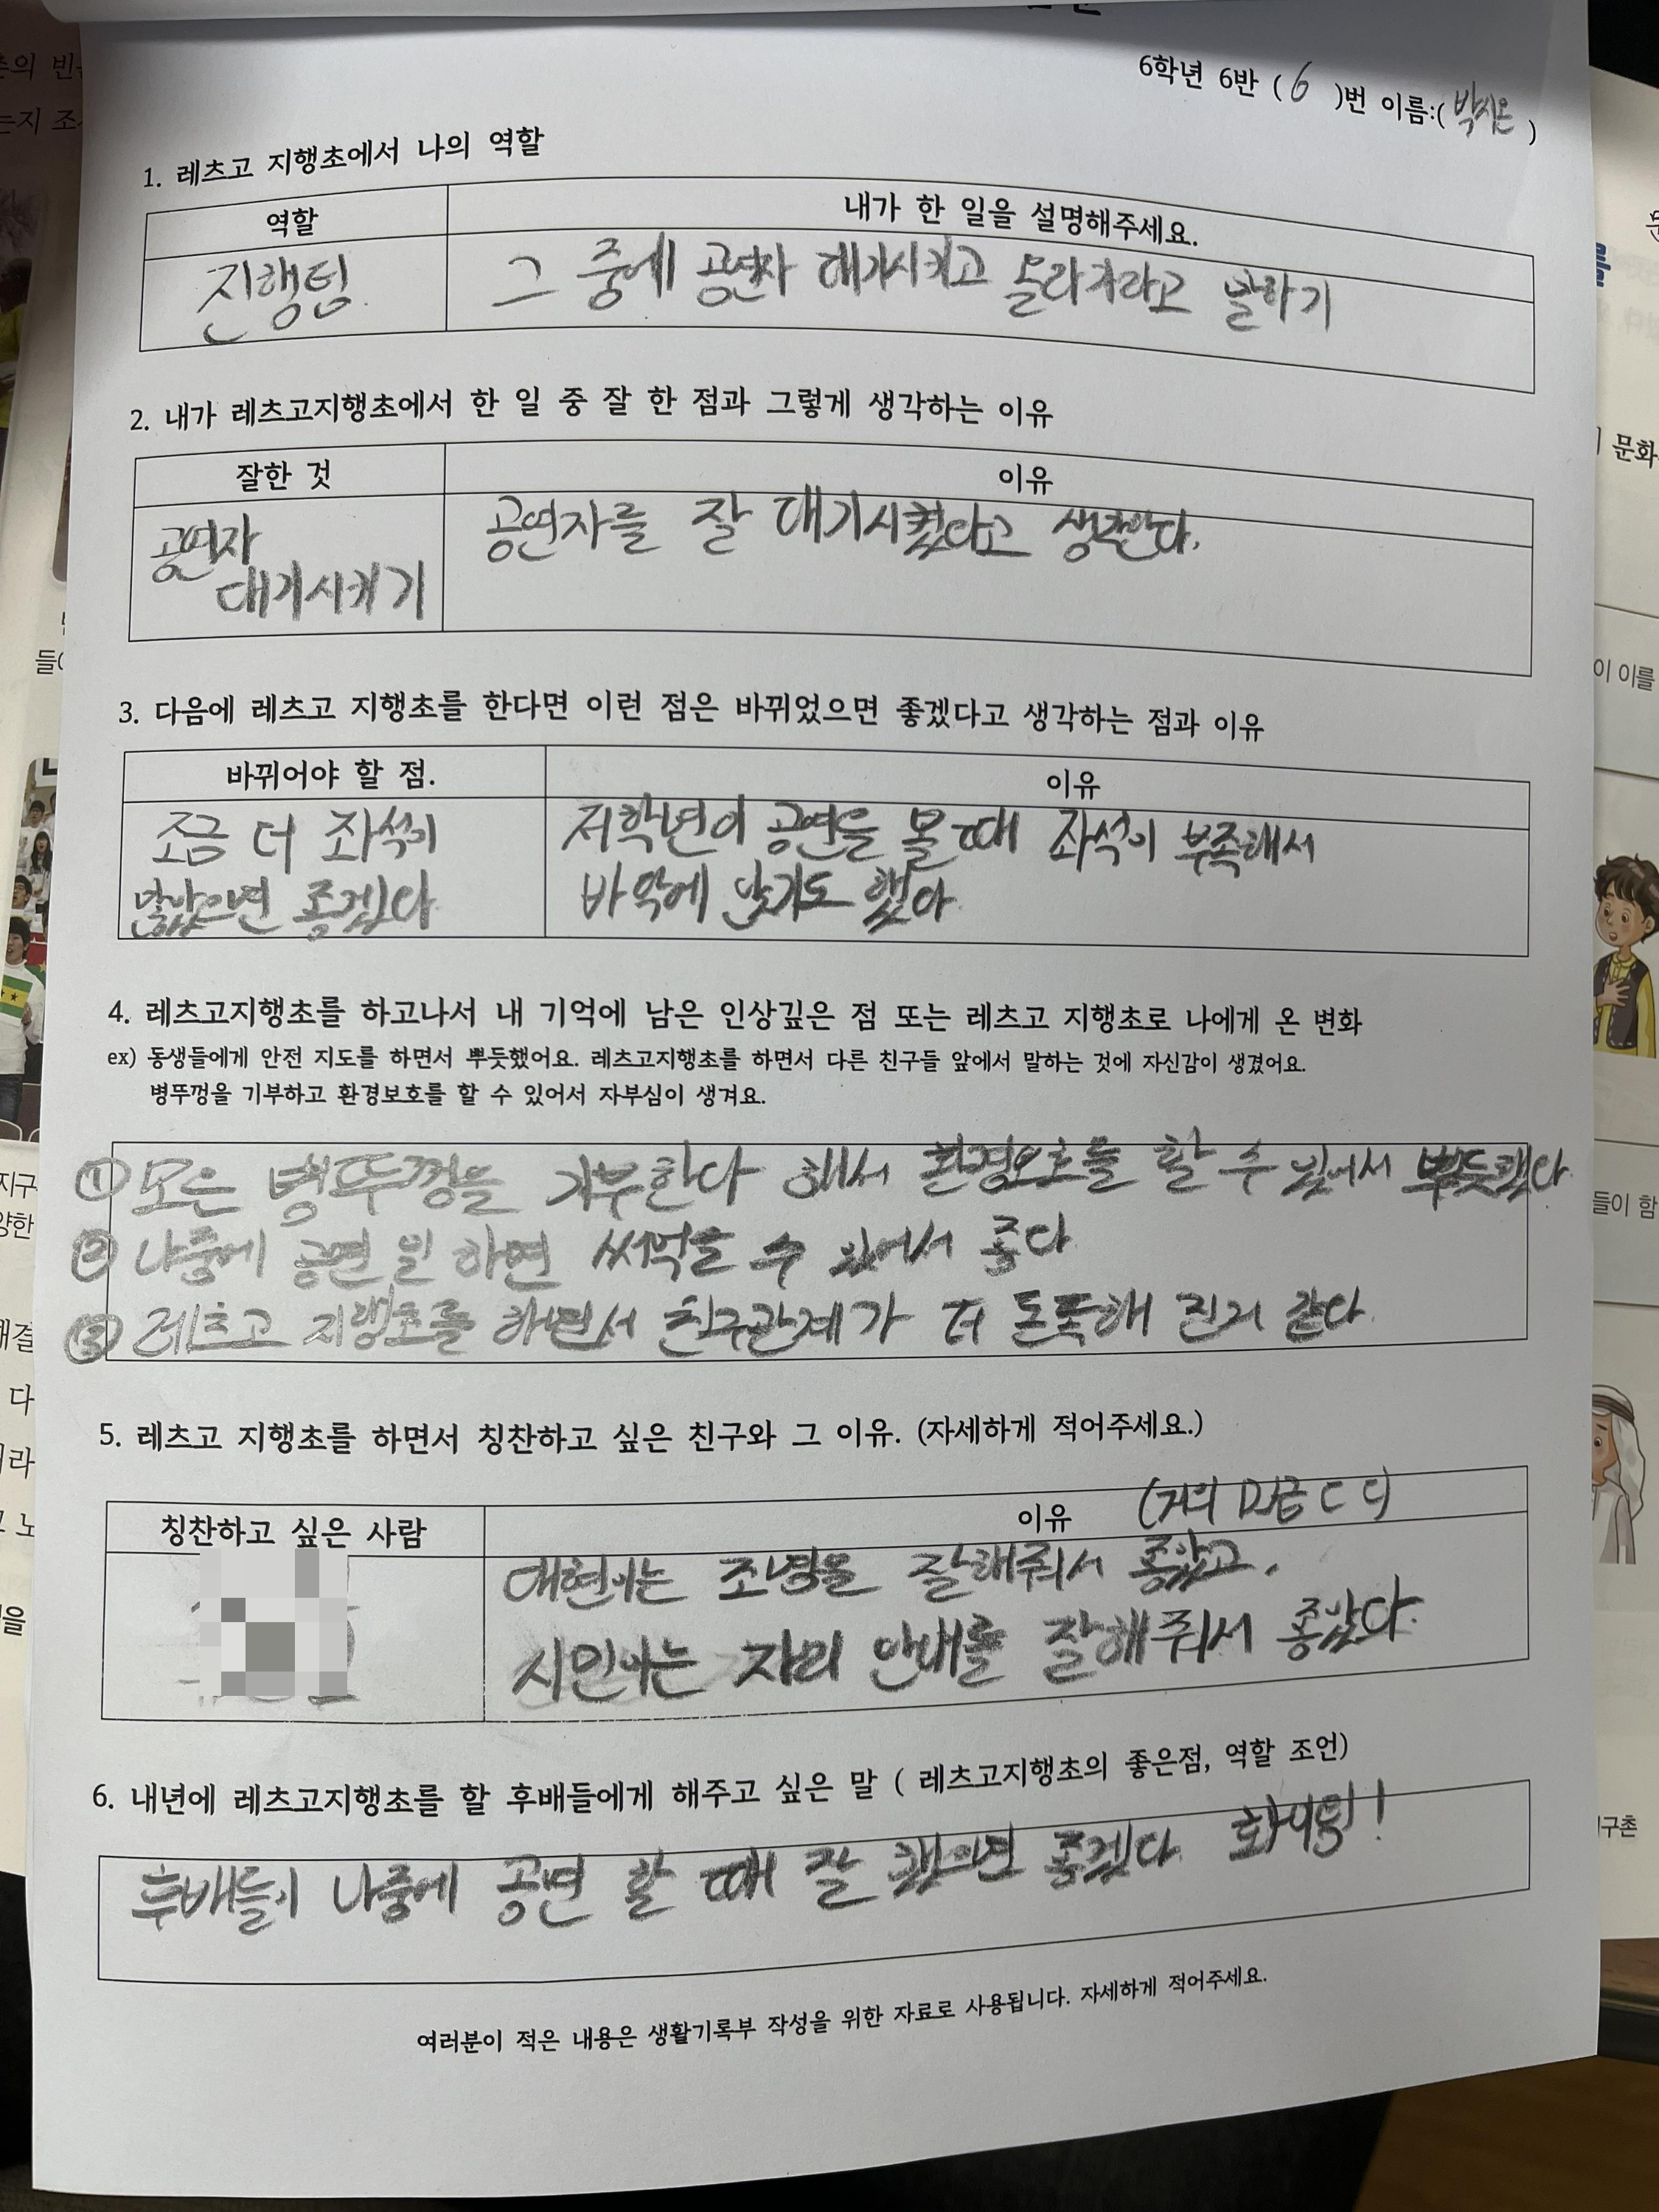 6학년 6반 ( 6 )번 이름:( 박시온 )
1. 레츠고 지행초에서 나의 역할
역할
내가 한 일을 설명해주세요.
진행팀
그 중에 공연자 대기시키고 올라가라고 말하기
2. 내가 레츠고지행초에서 한 일 중 잘 한 점과 그렇게 생각하는 이유
잘한 것
이유
공연자
대기시키기
공연자를 잘 대기시켰다고 생각한다.
3. 다음에 레츠고 지행초를 한다면 이런 점은 바뀌었으면 좋겠다고 생각하는 점과 이유
바뀌어야 할 점.
이유
조금 더 좌석이
많았으면 좋겠다
저학년이 공연을 볼 때 좌석이 부족해서
바닥에 앉기도 했다.
4. 레츠고지행초를 하고나서 내 기억에 남은 인상깊은 점 또는 레츠고 지행초로 나에게 온 변화
ex) 동생들에게 안전 지도를 하면서 뿌듯했어요. 레츠고지행초를 하면서 다른 친구들 앞에서 말하는 것에 자신감이 생겼어요.
병뚜껑을 기부하고 환경보호를 할 수 있어서 자부심이 생겨요.
① 모은 병뚜껑을 기부한다 해서 환경보호를 할 수 있어서 뿌듯했다.
② 나중에 공연 일 하면 써먹을 수 있어서 좋다
③ 레츠고 지행초를 하면서 친구관계가 더 돈독해 진거 같다.
5. 레츠고 지행초를 하면서 칭찬하고 싶은 친구와 그 이유. (자세하게 적어주세요.)
칭찬하고 싶은 사람
이유
대현이는 조명을 잘해줘서 좋았고,
시인이는 자리 안내를 잘해줘서 좋았다.
6. 내년에 레츠고지행초를 할 후배들에게 해주고 싶은 말 ( 레츠고지행초의 좋은점, 역할 조언)
후배들이 나중에 공연 할 때 잘 했으면 좋겠다. 화이팅!
여러분이 적은 내용은 생활기록부 작성을 위한 자료로 사용됩니다. 자세하게 적어주세요.